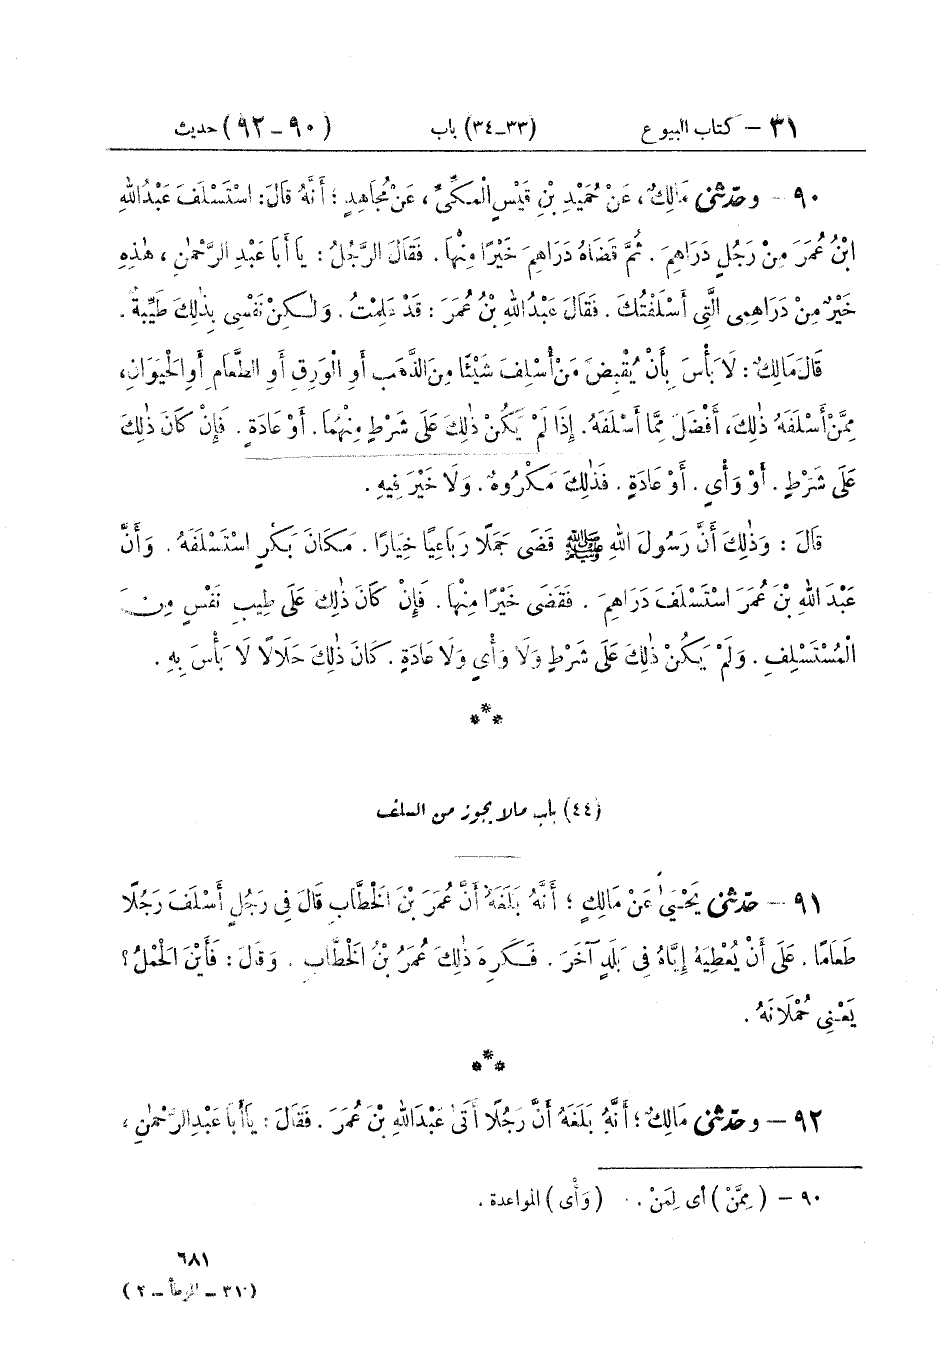 ٣١ – كتاب البيوع (٣٣–٣٤) باب (٩٠–٩٢) حديث
٩٠ – وحدّثنى مَالِكٌ، عَنْ حُمَيْدِ بْنِ قَيْسٍ الْمَكِّىِّ، عَنْ مُجَاهِدٍ؛ أَنَّهُ قَالَ: اسْتَسْلَفَ عَبْدُ اللهِ
ابْنُ عُمَرَ مِنْ رَجُلٍ دَرَاهِمَ. ثُمَّ قَضَاهُ دَرَاهِمَ خَيْرًا مِنْهَا. فَقَالَ الرَّجُلُ: يَا أَبَا عَبْدِ الرَّحْمٰنِ، هٰذِهِ
خَيْرٌ مِنْ دَرَاهِمِى الَّتِى أَسْلَفْتُكَ. فَقَالَ عَبْدُ اللهِ بْنُ عُمَرَ: قَدْ عَلِمْتُ. وَلٰكِنْ نَفْسِى بِذٰلِكَ طَيِّبَةٌ.
قَالَ مَالِكٌ: لَا بَأْسَ بِأَنْ يُقْبِضَ مَنْ أُسْلِفَ شَيْئًا مِنَ الذَّهَبِ أَوِ الْوَرِقِ أَوِ الطَّعَامِ أَوِ الْحَيَوَانِ،
مِمَّنْ أَسْلَفَهُ ذٰلِكَ، أَفْضَلَ مِمَّا أَسْلَفَهُ. إِذَا لَمْ يَكُنْ ذٰلِكَ عَلَى شَرْطٍ مِنْهُمَا. أَوْ عَادَةٍ. فَإِنْ كَانَ ذٰلِكَ
عَلَى شَرْطٍ. أَوْ وَأْىٍ. أَوْ عَادَةٍ. فَذٰلِكَ مَكْرُوهٌ. وَلَا خَيْرَ فِيهِ.
قَالَ: وَذٰلِكَ أَنَّ رَسُولَ اللهِ ﷺ قَضَى جَمَلًا رَبَاعِيًا خِيَارًا. مَكَانَ بَكْرٍ اسْتَسْلَفَهُ. وَأَنَّ
عَبْدَ اللهِ بْنَ عُمَرَ اسْتَسْلَفَ دَرَاهِمَ. فَقَضَى خَيْرًا مِنْهَا. فَإِنْ كَانَ ذٰلِكَ عَلَى طِيبِ نَفْسٍ مِنَ
الْمُسْتَسْلِفِ. وَلَمْ يَكُنْ ذٰلِكَ عَلَى شَرْطٍ وَلَا وَأْىٍ وَلَا عَادَةٍ. كَانَ ذٰلِكَ حَلَالًا لَا بَأْسَ بِهِ.
***
(٤٤) باب مالا يجوز من السلف
٩١ – حدّثنى يَحْيَىٰ عَنْ مَالِكٍ؛ أَنَّهُ بَلَغَهُ أَنَّ عُمَرَ بْنَ الْخَطَّابِ قَالَ فِى رَجُلٍ أَسْلَفَ رَجُلًا
طَعَامًا. عَلَى أَنْ يُعْطِيَهُ إِيَّاهُ فِى بَلَدٍ آخَرَ. فَكَرِهَ ذٰلِكَ عُمَرُ بْنُ الْخَطَّابِ. وَقَالَ: فَأَيْنَ الْحَمْلُ؟
يَعْنِى حُمْلَانَهُ.
***
٩٢ – وحدّثنى مَالِكٌ؛ أَنَّهُ بَلَغَهُ أَنَّ رَجُلًا أَتَىٰ عَبْدَ اللهِ بْنَ عُمَرَ. فَقَالَ: يَا أَبَا عَبْدِ الرَّحْمٰنِ،
٩٠ – (مِمَّنْ) أى لِمَنْ. (وَأْى) المواعدة.
٦٨١
(٣١٠ – الموطأ – ٢)